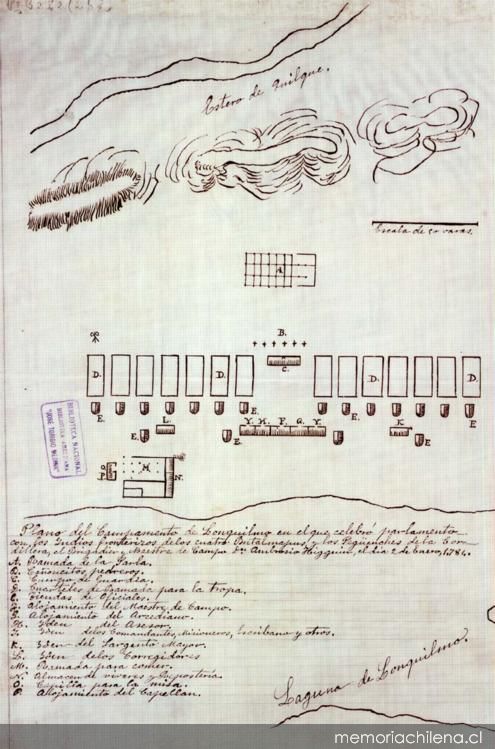 Estero de Quilque.
Escala de 50 varas.
A.
B.
C.
D. D. D. D.
E. E. E. E
L. Y. H. F. G. Y. K
E. E. E. E
M. N.
O
P
BIBLIOTECA NACIONAL
BIBLIOTECA AMERICANA
"JOSE TORIBIO MEDINA"
Plano del Campamento de Lonquilmo en el que celebró parlamento
con los Indios fronterizos, de los cuatro Butalmapus, y los Peguenches de la Cor-
dillera, el Brigadier y Maestre de Campo Dn Ambrosio Higguins, el dia 2 de Enero, 1784.
A. Ramada de la Parla.
B. Cañoncitos pedreros.
C. Cuerpo de Guardia.
D. Cuarteles de Ramada para la tropa.
E. Tiendas de Oficiales.
F. Alojamiento del Maestre de Campo.
G. Alojamiento del Arcediano.
H. Iden del Asesor.
Y. Iden delos Comandantes, Misioneros, Escribano y otros.
K. Iden del Sargento Mayor.
L. Iden delos Corregidores
M. Ramada para comer.
N. Almacen de viveres y Repostería.
O. Capilla para la misa.
P. Alojamiento del Capellan.
Laguna de Lonquilmo.
memoriachilena.cl